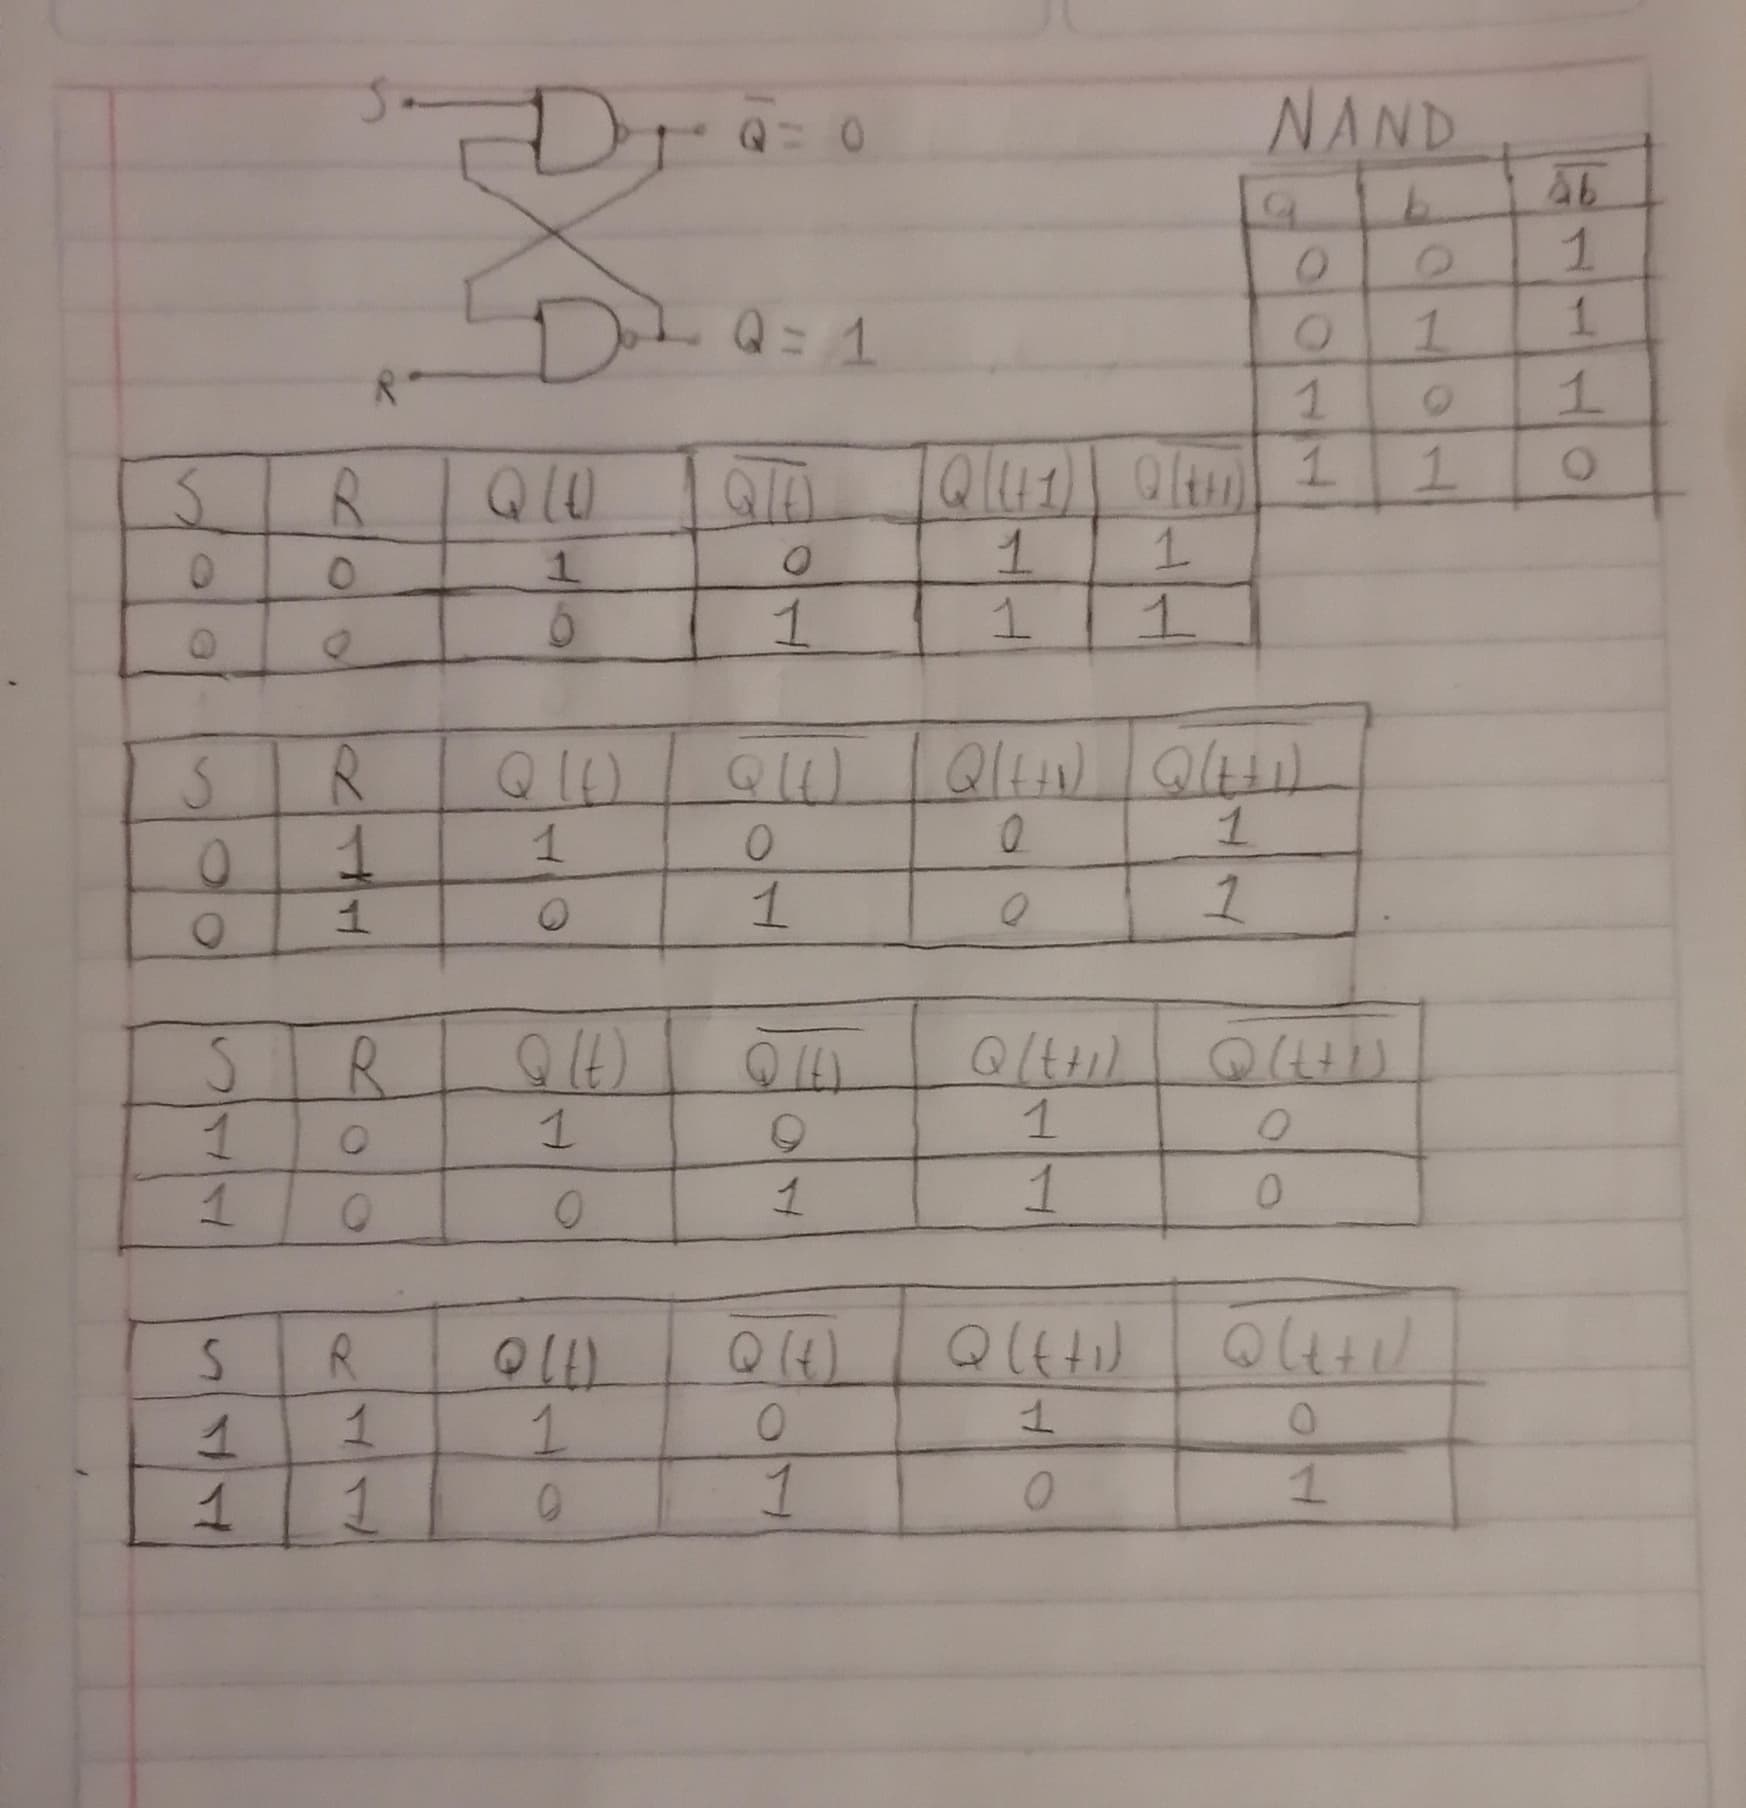 S Q̅ = 0
R Q = 1
NAND
a b a̅b̅
0 0 1
0 1 1
1 0 1
1 1 0
S R Q(t) Q̅(̅t̅)̅ Q(t+1) Q̅(̅t̅+̅1̅)̅
0 0 1 0 1 1
0 0 0 1 1 1
S R Q(t) Q̅(̅t̅)̅ Q(t+1) Q̅(̅t̅+̅1̅)̅
0 1 1 0 0 1
0 1 0 1 0 1
S R Q(t) Q̅(̅t̅)̅ Q(t+1) Q̅(̅t̅+̅1̅)̅
1 0 1 0 1 0
1 0 0 1 1 0
S R Q(t) Q̅(̅t̅)̅ Q(t+1) Q̅(̅t̅+̅1̅)̅
1 1 1 0 1 0
1 1 0 1 0 1